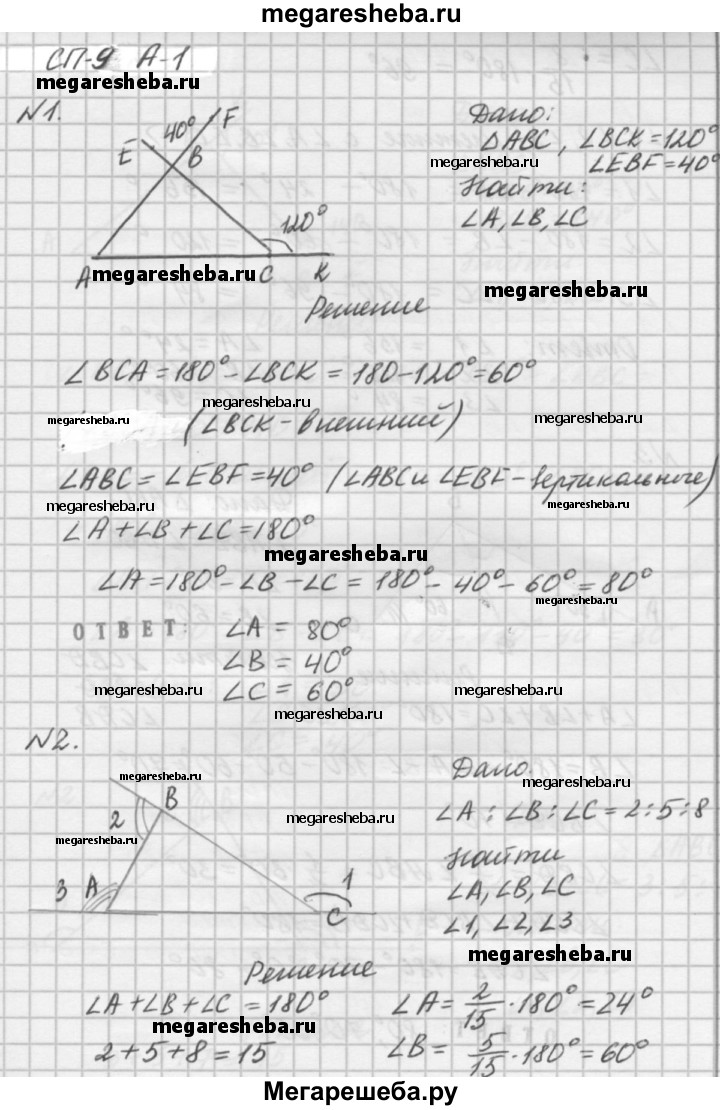 megaresheba.ru
СП-9 А-1
megaresheba.ru
№1.
40° F
E B
120°
A C K
megaresheba.ru
Дано:
△ABC, ∠BCK = 120°
megaresheba.ru ∠EBF = 40°
Найти:
∠A, ∠B, ∠C
megaresheba.ru
Решение
∠BCA = 180° - ∠BCK = 180 - 120° = 60°
megaresheba.ru
megaresheba.ru (∠BCK - внешний) megaresheba.ru
∠ABC = ∠EBF = 40° (∠ABC и ∠EBF - вертикальные)
megaresheba.ru megaresheba.ru
∠A + ∠B + ∠C = 180°
megaresheba.ru
∠A = 180° - ∠B - ∠C = 180° - 40° - 60° = 80°
megaresheba.ru
ОТВЕТ: ∠A = 80°
∠B = 40°
megaresheba.ru ∠C = 60° megaresheba.ru
megaresheba.ru
№2.
megaresheba.ru
B
2
megaresheba.ru
megaresheba.ru
3 A 1
C
Дано
megaresheba.ru
∠A : ∠B : ∠C = 2 : 5 : 8
Найти
∠A, ∠B, ∠C
∠1, ∠2, ∠3
megaresheba.ru
Решение
∠A + ∠B + ∠C = 180° ∠A = 2/15 · 180° = 24°
megaresheba.ru
2 + 5 + 8 = 15 ∠B = 5/15 · 180° = 60°
Мегарешеба.ру